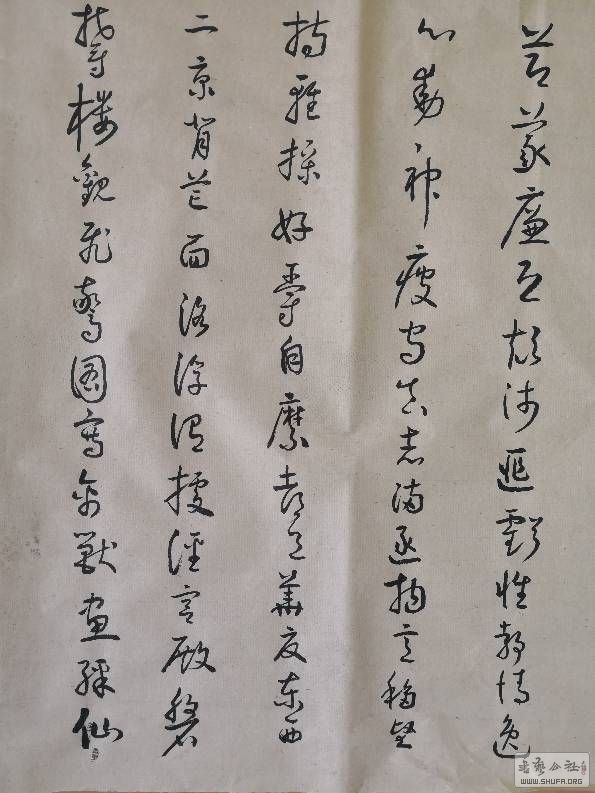 節義廉退顛沛匪虧性靜情逸
心動神疲守真志滿逐物意移堅
持雅操好爵自縻都邑華夏東西
二京背芒面洛浮渭據涇宮殿磐
鬱樓觀飛驚圖寫禽獸畫綵仙
书艺公社
WWW.SHUFA.ORG